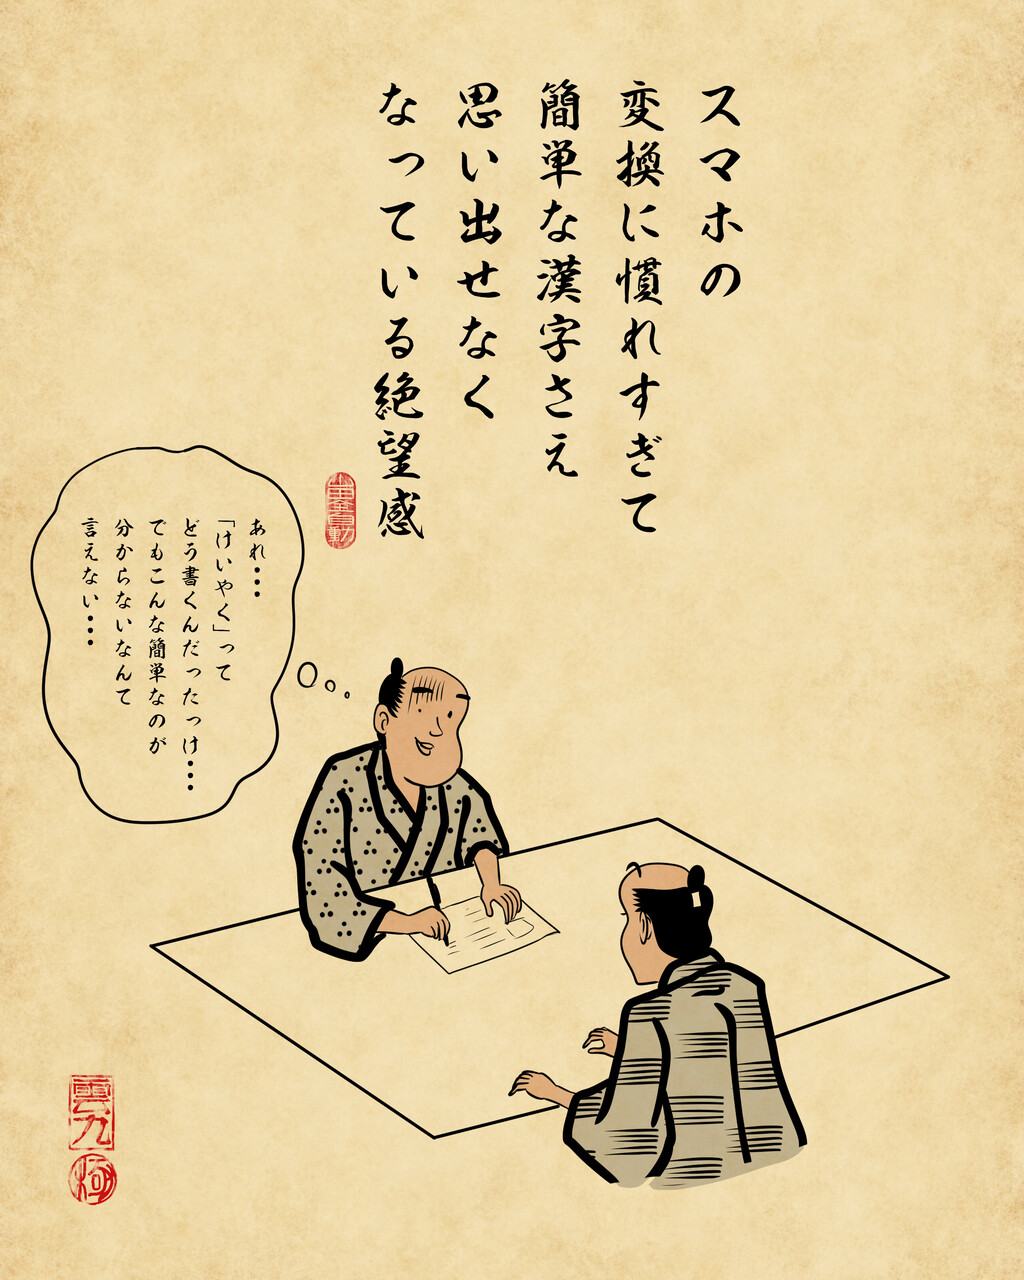 スマホの
変換に慣れすぎて
簡単な漢字さえ
思い出せなく
なっている絶望感
あれ・・・
「けいやく」って
どう書くんだったっけ・・・
でもこんな簡単なのが
分からないなんて
言えない・・・